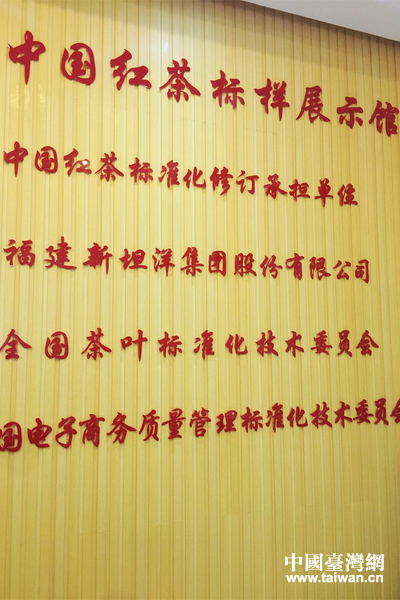 中国红茶标样展示馆
中国红茶标准化修订承担单位
福建新坦洋集团股份有限公司
全国茶叶标准化技术委员会
国电子商务质量管理标准化技术委员会
中國臺灣網
www.taiwan.cn